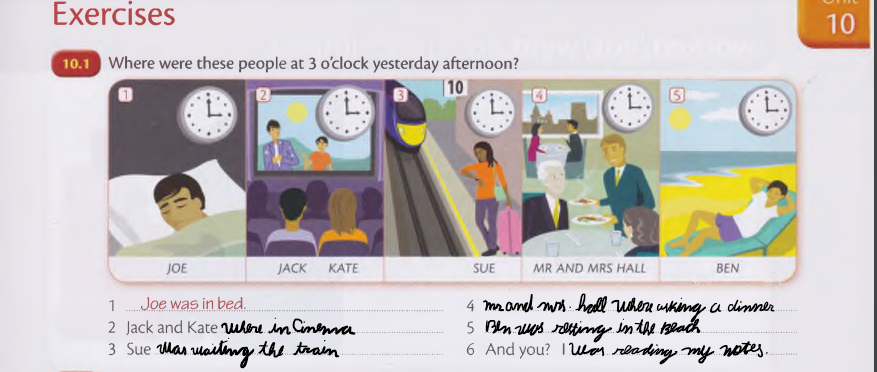 Exercises
Unit
10
10.1 Where were these people at 3 o'clock yesterday afternoon?
1
2
3
10
4
5
JOE
JACK KATE
SUE
MR AND MRS HALL
BEN
1 Joe was in bed.
2 Jack and Kate Where in Cinema
3 Sue Was waiting the train
4 mr and mrs. hall Where asking a dinner
5 Ben was resting in the Beach
6 And you? I was reading my notes.